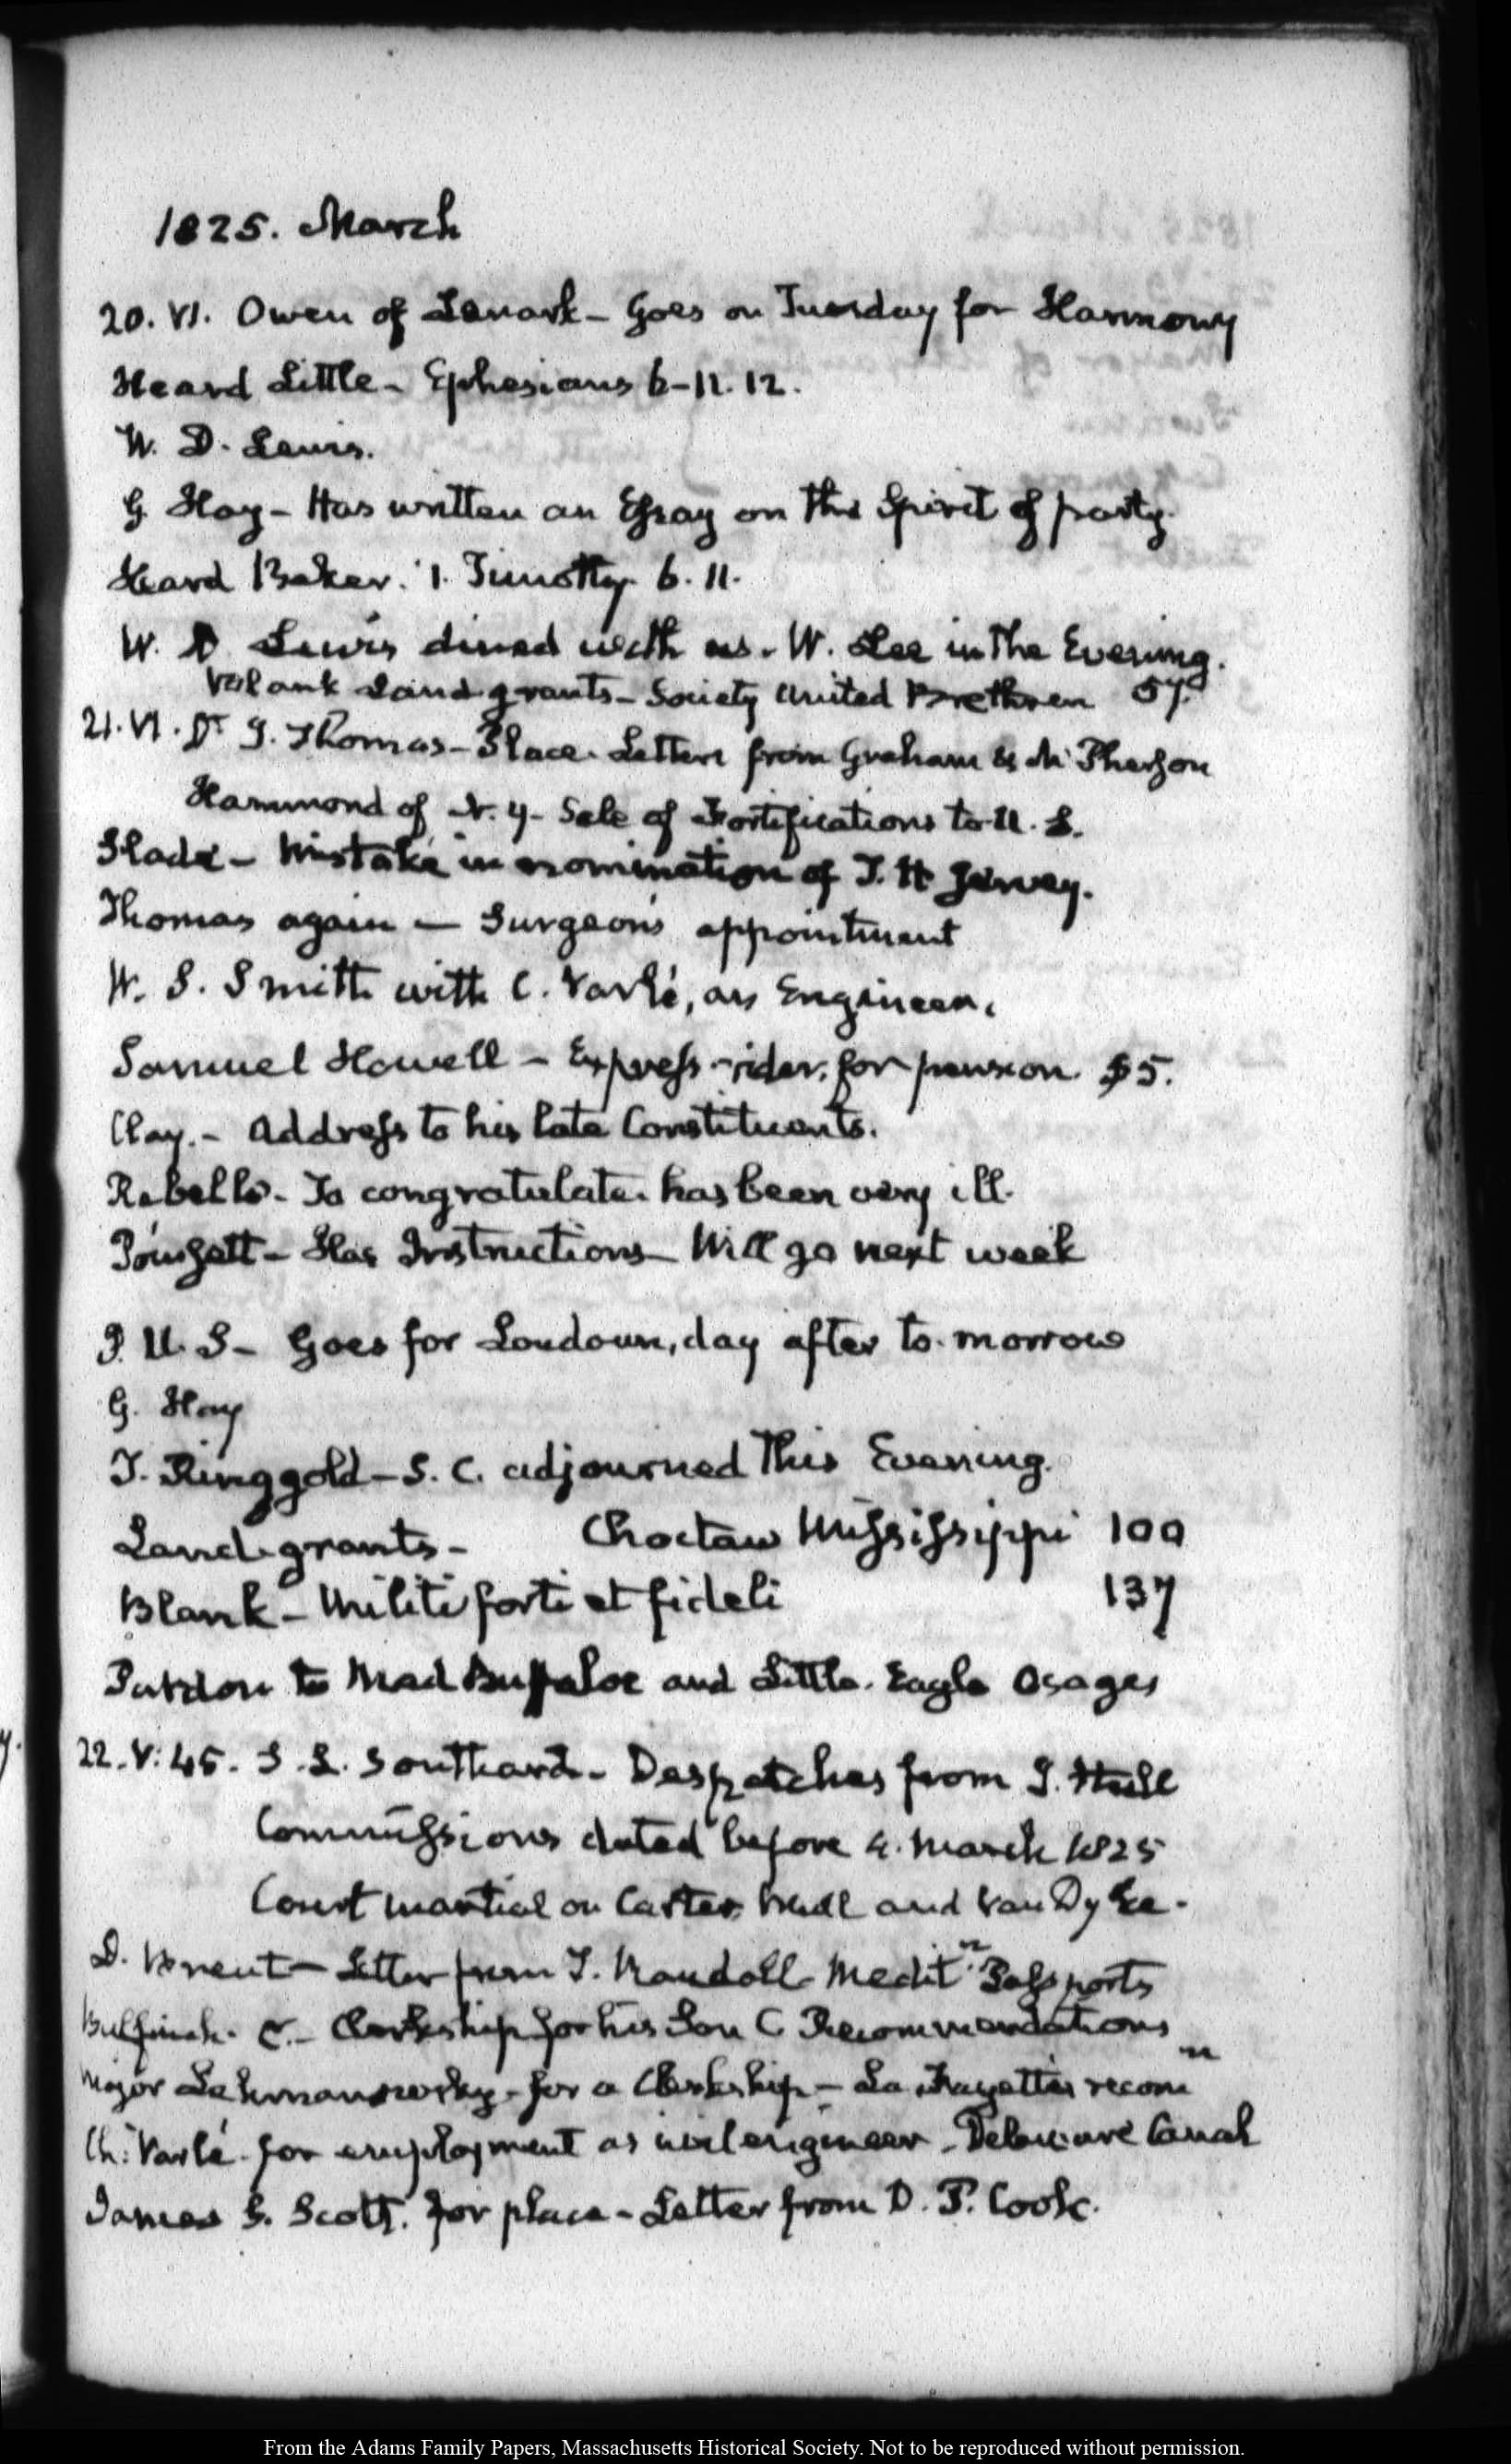 1825. March
20. VI. Owen of Lanark – Goes on Tuesday for Harmony
Heard Little – Ephesians 6–11. 12.
W. D. Lewis.
G Hay – Has written an Essay on the Spirit of party.
Heard Baker. 1. Timothy 6. 11.
W. D Lewis dined with us. W. Lee in the Evening.
Blank Land grants – Society United Brethren 57.
21. VI. Dr J. Thomas – Place. Letters from Graham & McPherson
Hammond of N. Y – Sale of Fortifications to U. S.
Slade – Mistake in nomination of T. H
Thomas again – Surgeon's appointment
W. S. Smith with C. Varlé, as Engineer.
Samuel Howell – Express-rider, for pension. $5.
Clay. – Address to his late Constituents.
Rebello – To congratulate. has been very ill.
Poinsett – Has Instructions – Will go next week
P. U. S – Goes for Loudoun, day after to-morrow
G. Hay
T. Ringgold – S. C. adjourned this Evening.
Land grants – Choctaw Mississippi 100
Blank – Militi forti et fideli 137
Pardon to Mad Buffaloe and Little Eagle Osages
22. V: 45. S. L. Southard – Despatches from I. Hull
Commissions dated before 4. March 1825
Court martial on Carter, and Van Dyke.
D. Brent – Letter from T. Randall Meditn Passports
Bulfinch. C. – Clerkship for his Son C Recommendations
Major Lehmanowsky – for a Clerkship – La Fayette's recomn
Ch: Varlé – for employment as civil engineer – Delaware Canal
James S. Scott. for place – Letter from D. P. Cook.
From the Adams Family Papers, Massachusetts Historical Society. Not to be reproduced without permission.